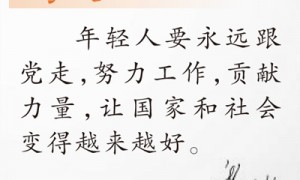 年轻人要永远跟
党走,努力工作,贡献
力量,让国家和社会
变得越来越好。